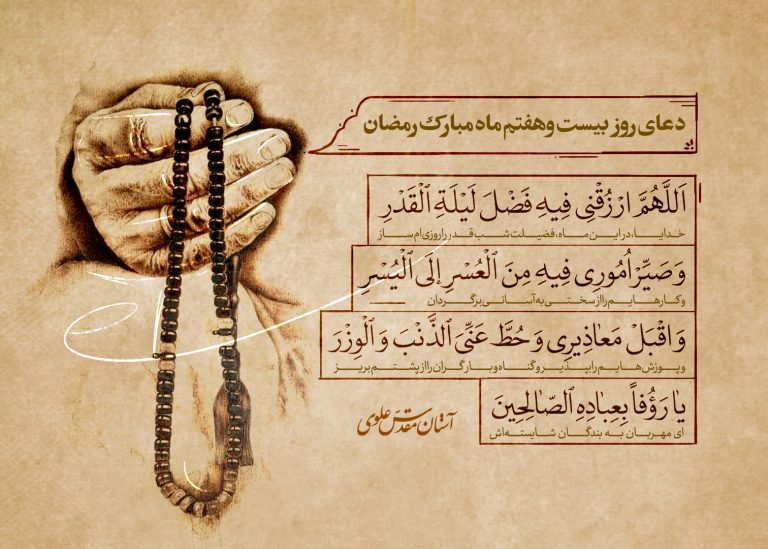 دعای روز بیست و هفتم ماه مبارک رمضان
اَللَّهُمَّ ارْزُقْنِی فِیهِ فَضْلَ لَیْلَةِ الْقَدْرِ
خدایا، در این ماه، فضیلت شب قدر را روزی‌ام ساز
وَ صَیِّرْ اُمُورِی فِیهِ مِنَ الْعُسْرِ إلَی الْیُسْرِ
و کارهایم را از سختی به آسانی برگردان
وَ اقْبَلْ مَعاذِیرِی وَ حُطَّ عَنِّیَ الذَّنْبَ وَ الْوِزْرَ
و پوزش‌هایم را بپذیر و گناه و بار گران را از پشتم بریز
یا رَؤُفاً بِعِبادِهِ الصّالِحِینَ
ای مهربان به بندگان شایسته‌اش
آستان مقدّس علوی